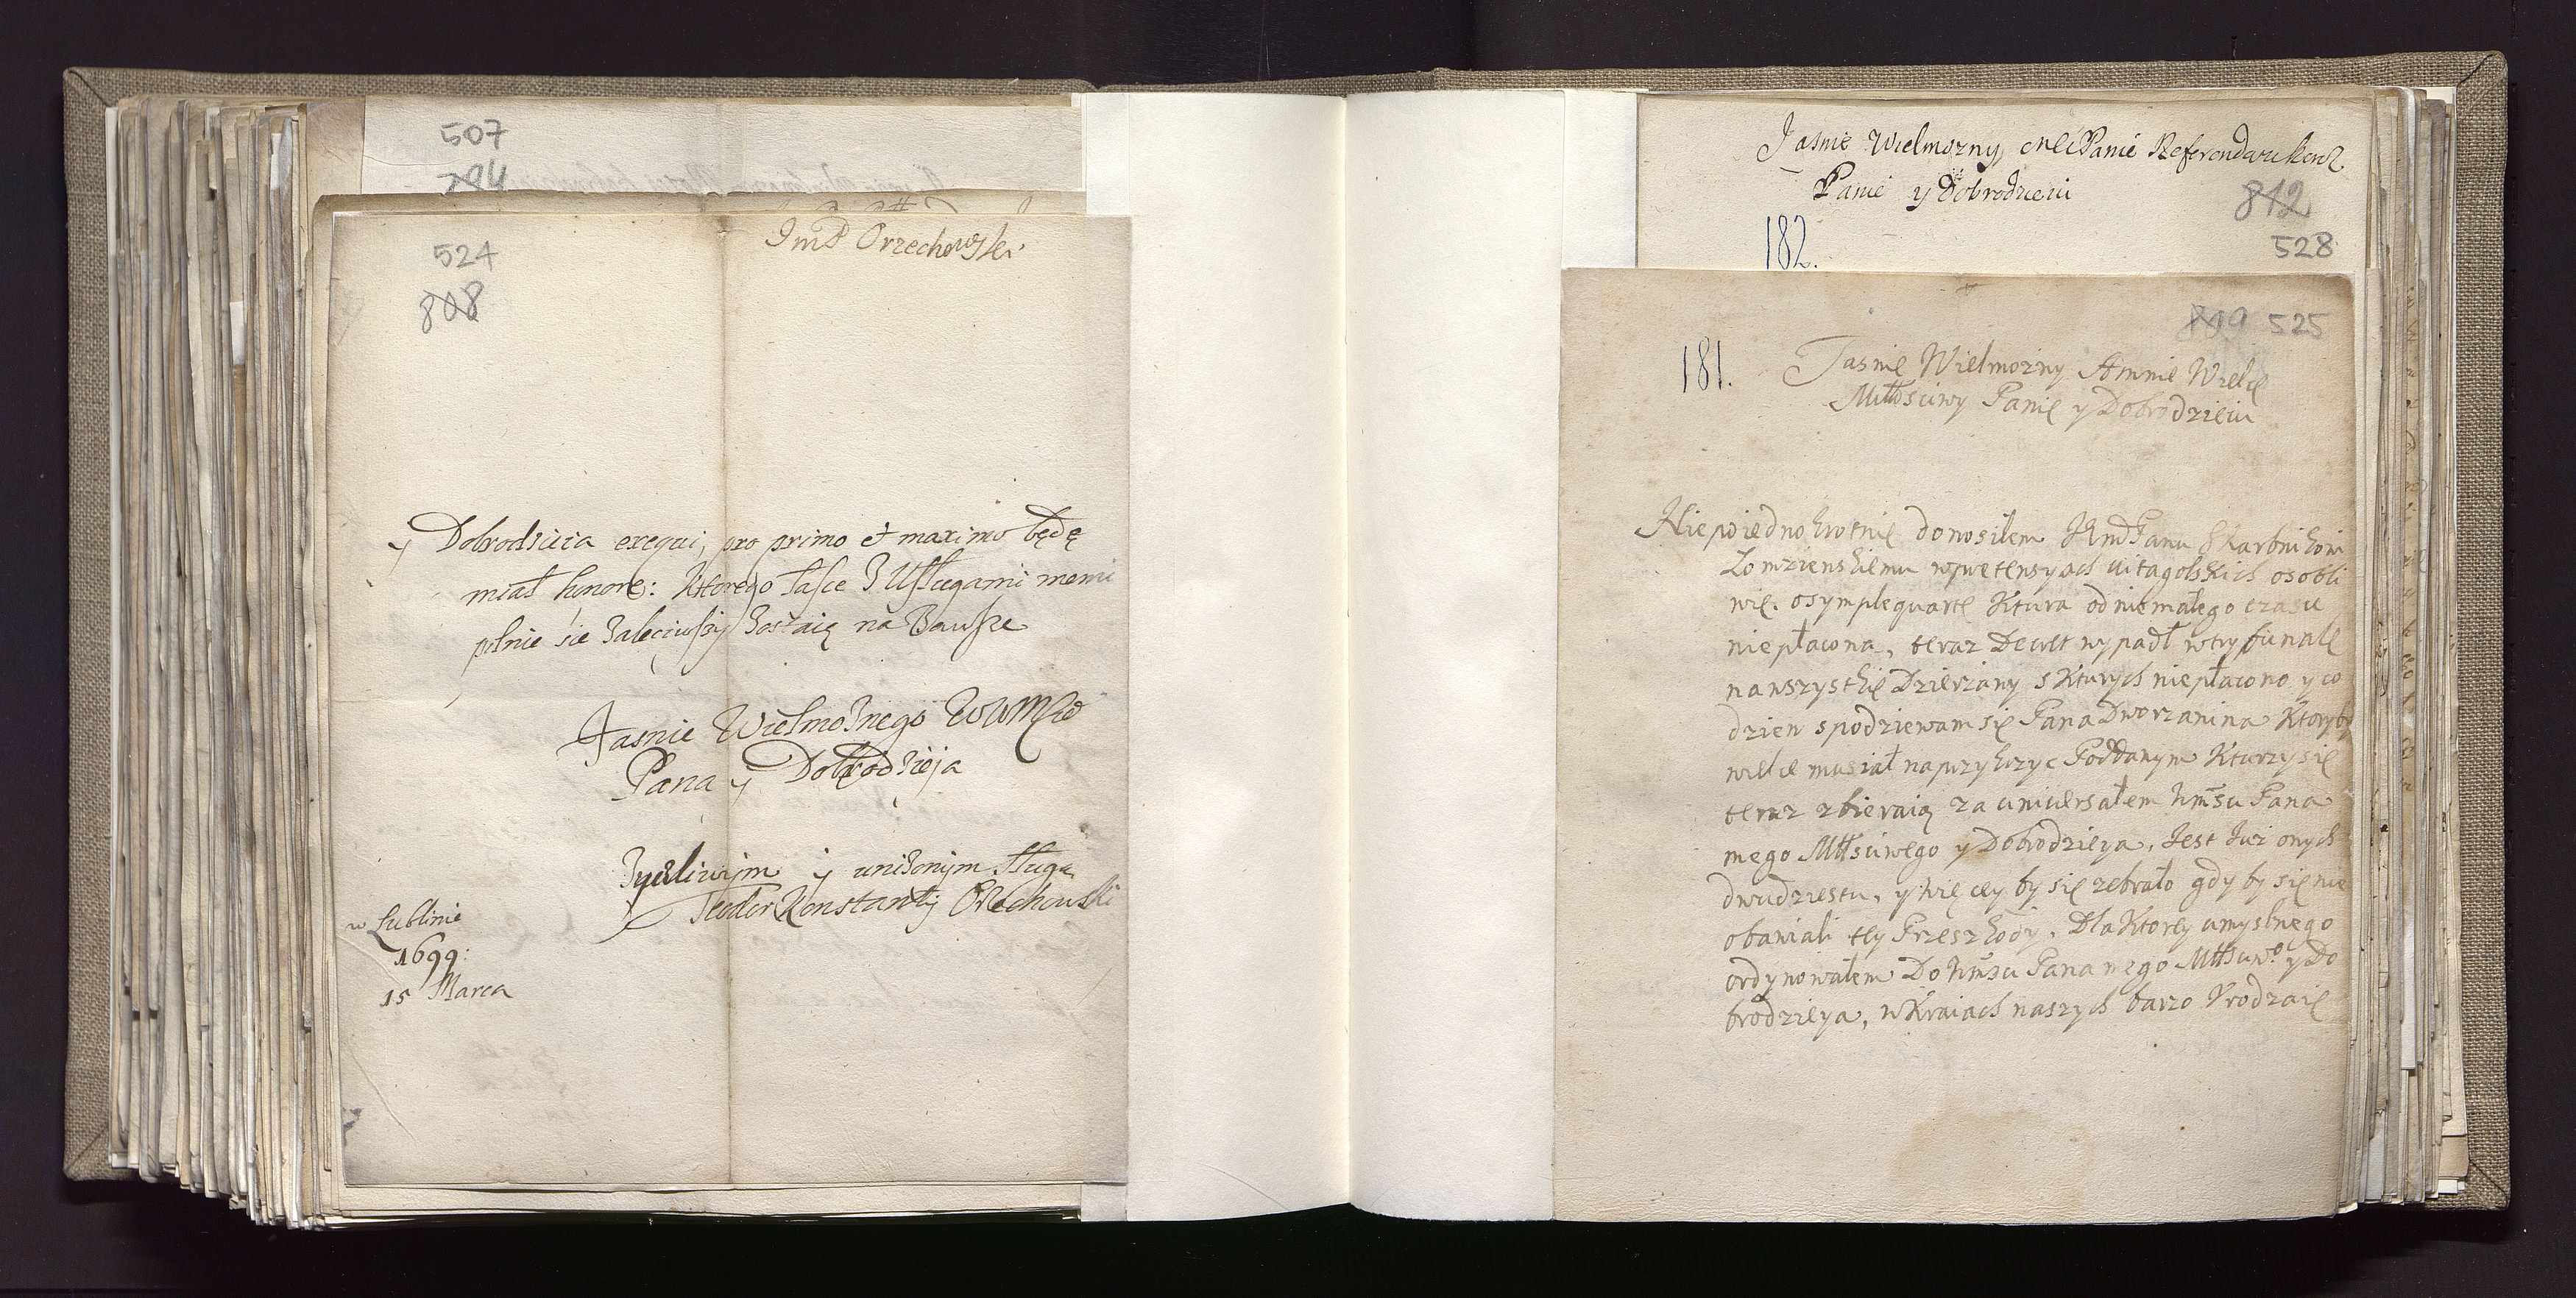 507
794
524
808
JmP Orzechowski
y Dobrodzieia exequi, pro primo et maximo będę
miał honore: ktorego łasce z Usługami memi
pilnie się zaleciwszy zostaię na zawsze
Jasnie Wielmoznego WWMPa
Pana y Dobrodzieja
zyczliwym y unizonym sługą
Teodor Konstanty Orzechowski
w Lublinie
1699:
15 Marca
Jasnie Wielmozny Panie Referendarzu
Panie y Dobrodzieiu
812
182.
528
809 525
181.
Jasnie Wielmozny Amnie Wielce
Miłłosciwy Panie y Dobrodzieiu
Niepoiednokrotnie donosiłem JEmPanu Skarbnikowi
Łomzienskiemu wpretensyach osobli
wie osymplequarte Ktura odniemałego czasu
niepłacona, teraz Decret wypadł wtrybunale
nawszystkie Dzierzawy s Kturych niepłacono y co
dzien spodziewam się Pana Dworzanina Ktoryby
wielce musiał naprzykrzyc Poddanym Kturzy się
teraz zbieraią za uniwersałem Pana
mego Młłsciwego y Dobrodzieya, Jest Juz onych
dwudziestu, y więcey by się zebrało gdy by się nie
obawiali tey Przeszkody, Dla Ktorey umyslnego
ordynowałem Do Pana mego Młłsciwo y Do
brodzieya, w Kraiach naszych barzo Vrodzaie